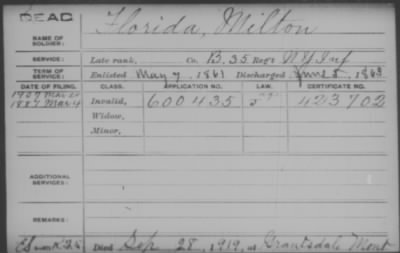 DEAD
Florida, Milton
NAME OF SOLDIER:
SERVICE: Late rank, Co. B. 35 Reg't N.Y. Inf
TERM OF SERVICE: Enlisted May 7, 1861 Discharged June 5, 1863
DATE OF FILING. CLASS. APPLICATION NO. LAW. CERTIFICATE NO.
1907 Mar
1887 Mar 4 Invalid, 600435 423702
Widow,
Minor,
ADDITIONAL SERVICES:
REMARKS:
Died Sep 28, 1919, at Grantsdale Mont